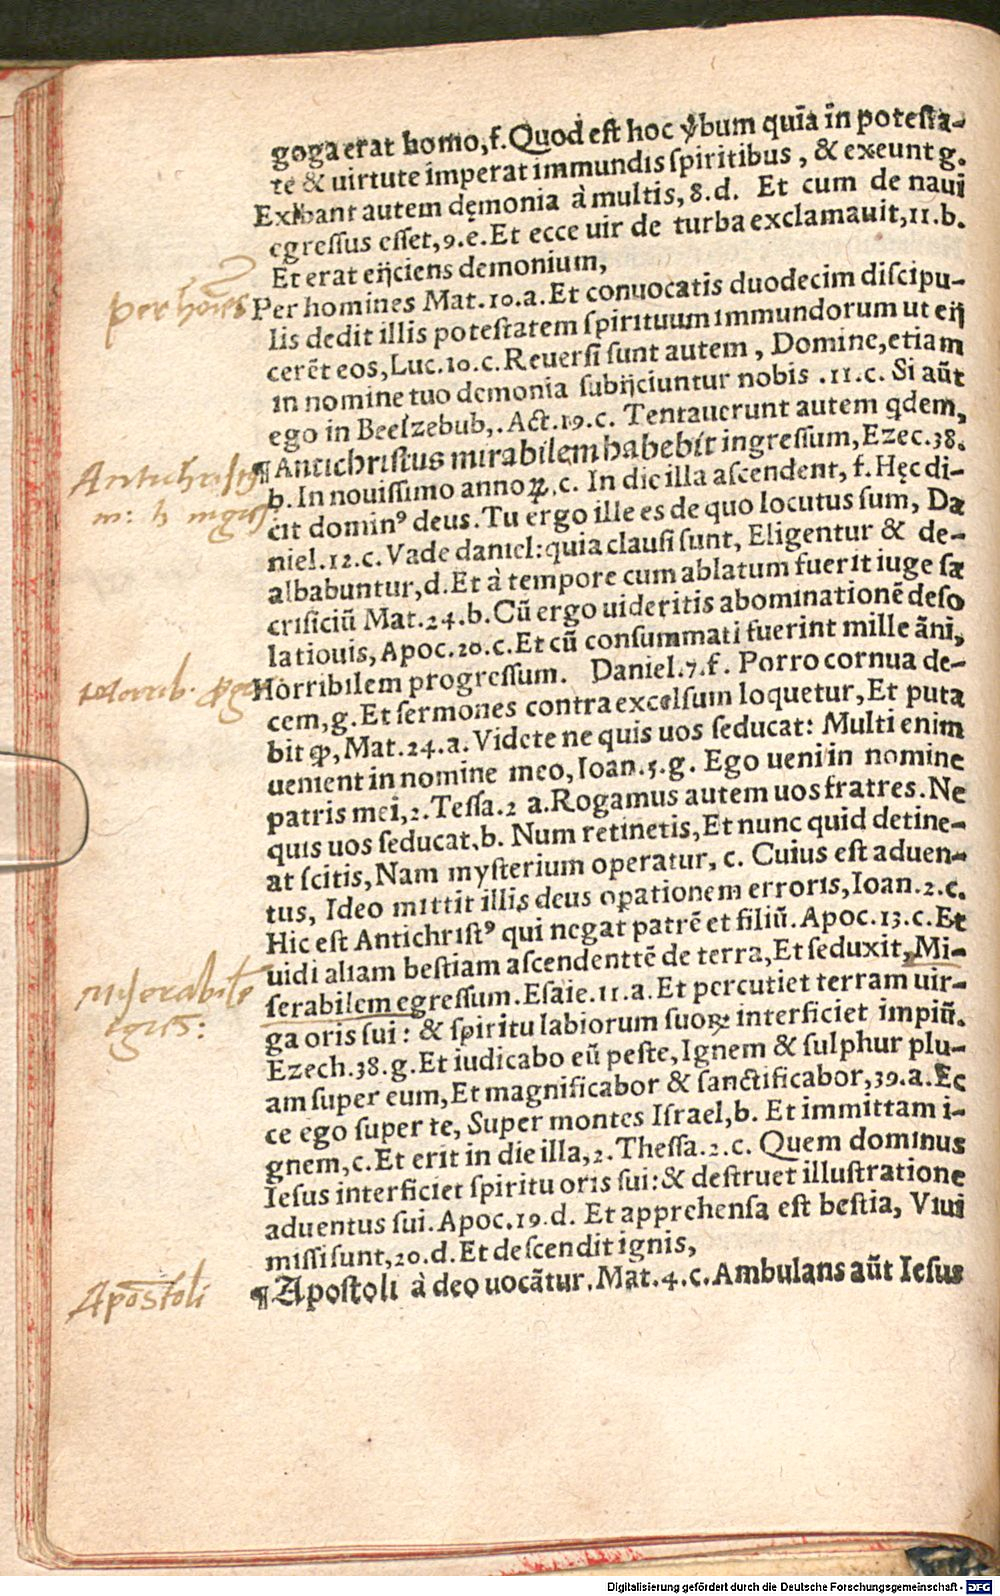 goga erat homo,f.Quod est hoc ꝟbum quĩa ĩn potesta-
te & uirtute imperat immundis spiritibus, & exeunt g.
Exibant autem dęmonia à multis,8.d. Et cum de naui
egressus esset,9.e.Et ecce uir de turba exclamauit,11.b.
Et erat eijciens demonium,
per hões
Per homines Mat.10.a.Et conuocatis duodecim discipu-
lis dedit illis potestatem spirituum immundorum ut eij
cerẽt eos,Luc.10.c.Reuersi sunt autem, Domine,etiam
in nomine tuo demonia subijciuntur nobis .11.c. Si aũt
ego in Beelzebub,.Act.19.c. Tentauerunt autem qdem,
Antichristꝰ
¶Antichristus mirabilem habebit ingressum,Ezec.38.
b.In nouissimo annoꝝ,c. In die illa ascendent, f.Hęc di-
cit dominꝰ deus.Tu ergo ille es de quo locutus sum, Da
niel.12.c.Vade daniel:quia clausi sunt, Eligentur & de-
albabuntur,d.Et à tempore cum ablatum fuerit iuge sa
crificiũ Mat.24.b.Cũ ergo uideritis abominationẽ deso
latiouis,Apoc.20.c.Et cũ consummati fuerint mille ãni,
Horrib. ꝓg
Horribilem progressum. Daniel.7.f. Porro cornua de-
cem,g.Et sermones contra excelsum loquetur,Et puta
bit ꝙ,Mat.24.a.Videte ne quis uos seducat: Multi enim
uenient in nomine meo,Ioan.5.g. Ego ueni in nomine
patris mei,2.Tessa.2 a.Rogamus autem uos fratres.Ne
quis uos seducat,b. Num retinetis,Et nunc quid detine-
at scitis,Nam mysterium operatur, c. Cuius est aduen-
tus, Ideo mittit illis deus oꝑationem erroris,Ioan.2.c.
Hic est Antichristꝰ qui negat patrẽ et filiũ.Apoc.13.c.Et
uidi aliam bestiam ascendenttẽ de terra,Et seduxit,Mi-
Miserabilẽ
egrẽs:
serabilem egressum.Esaie.11.a.Et percutiet terram uir-
ga oris sui: & spiritu labiorum suoꝝ interficiet impiũ.
Ezech.38.g.Et iudicabo eũ peste,Ignem & sulphur plu-
am super eum,Et magnificabor & sanctificabor,39.a.Ec
ce ego super te, Super montes Israel,b. Et immittam i-
gnem,c.Et erit in die illa,2.Thessa.2.c. Quem dominus
Iesus interficiet spiritu oris sui:& destruet illustratione
aduentus sui.Apoc.19.d. Et apprehensa est bestia, Viui
missi sunt,20.d.Et descendit ignis,
Apostoli
¶Apostoli à deo uocãtur.Mat.4.c.Ambulans aũt Iesus
Digitalisierung gefördert durch die Deutsche Forschungsgemeinschaft - DFG